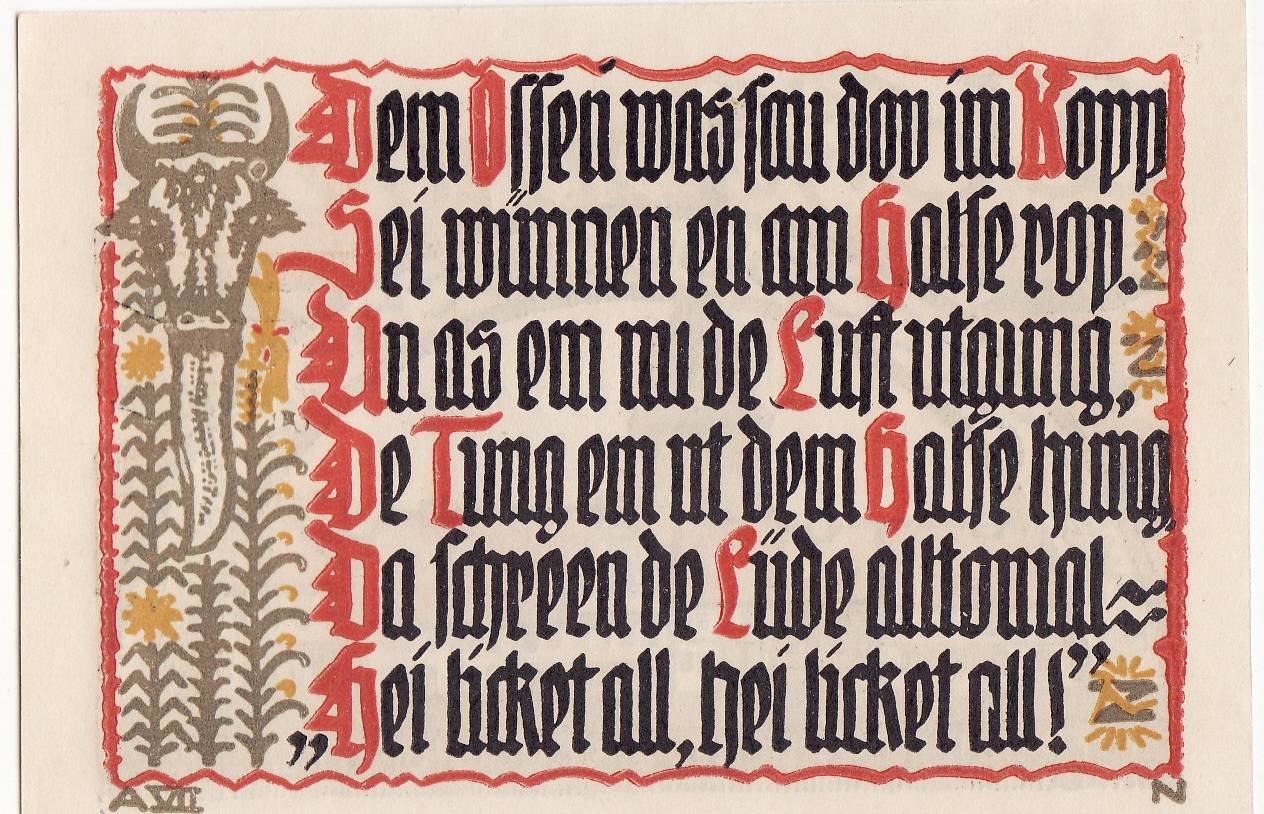 Dem Ossen was sau dov im Kopp
Sei wünnen en am Halse rop.
Un as em nu de Luft utgung,
De Tung em ut dem Halse hung
Da schreeen de Lüde alltomal
„Hei licket all, hei licket all!”
A VII
Z